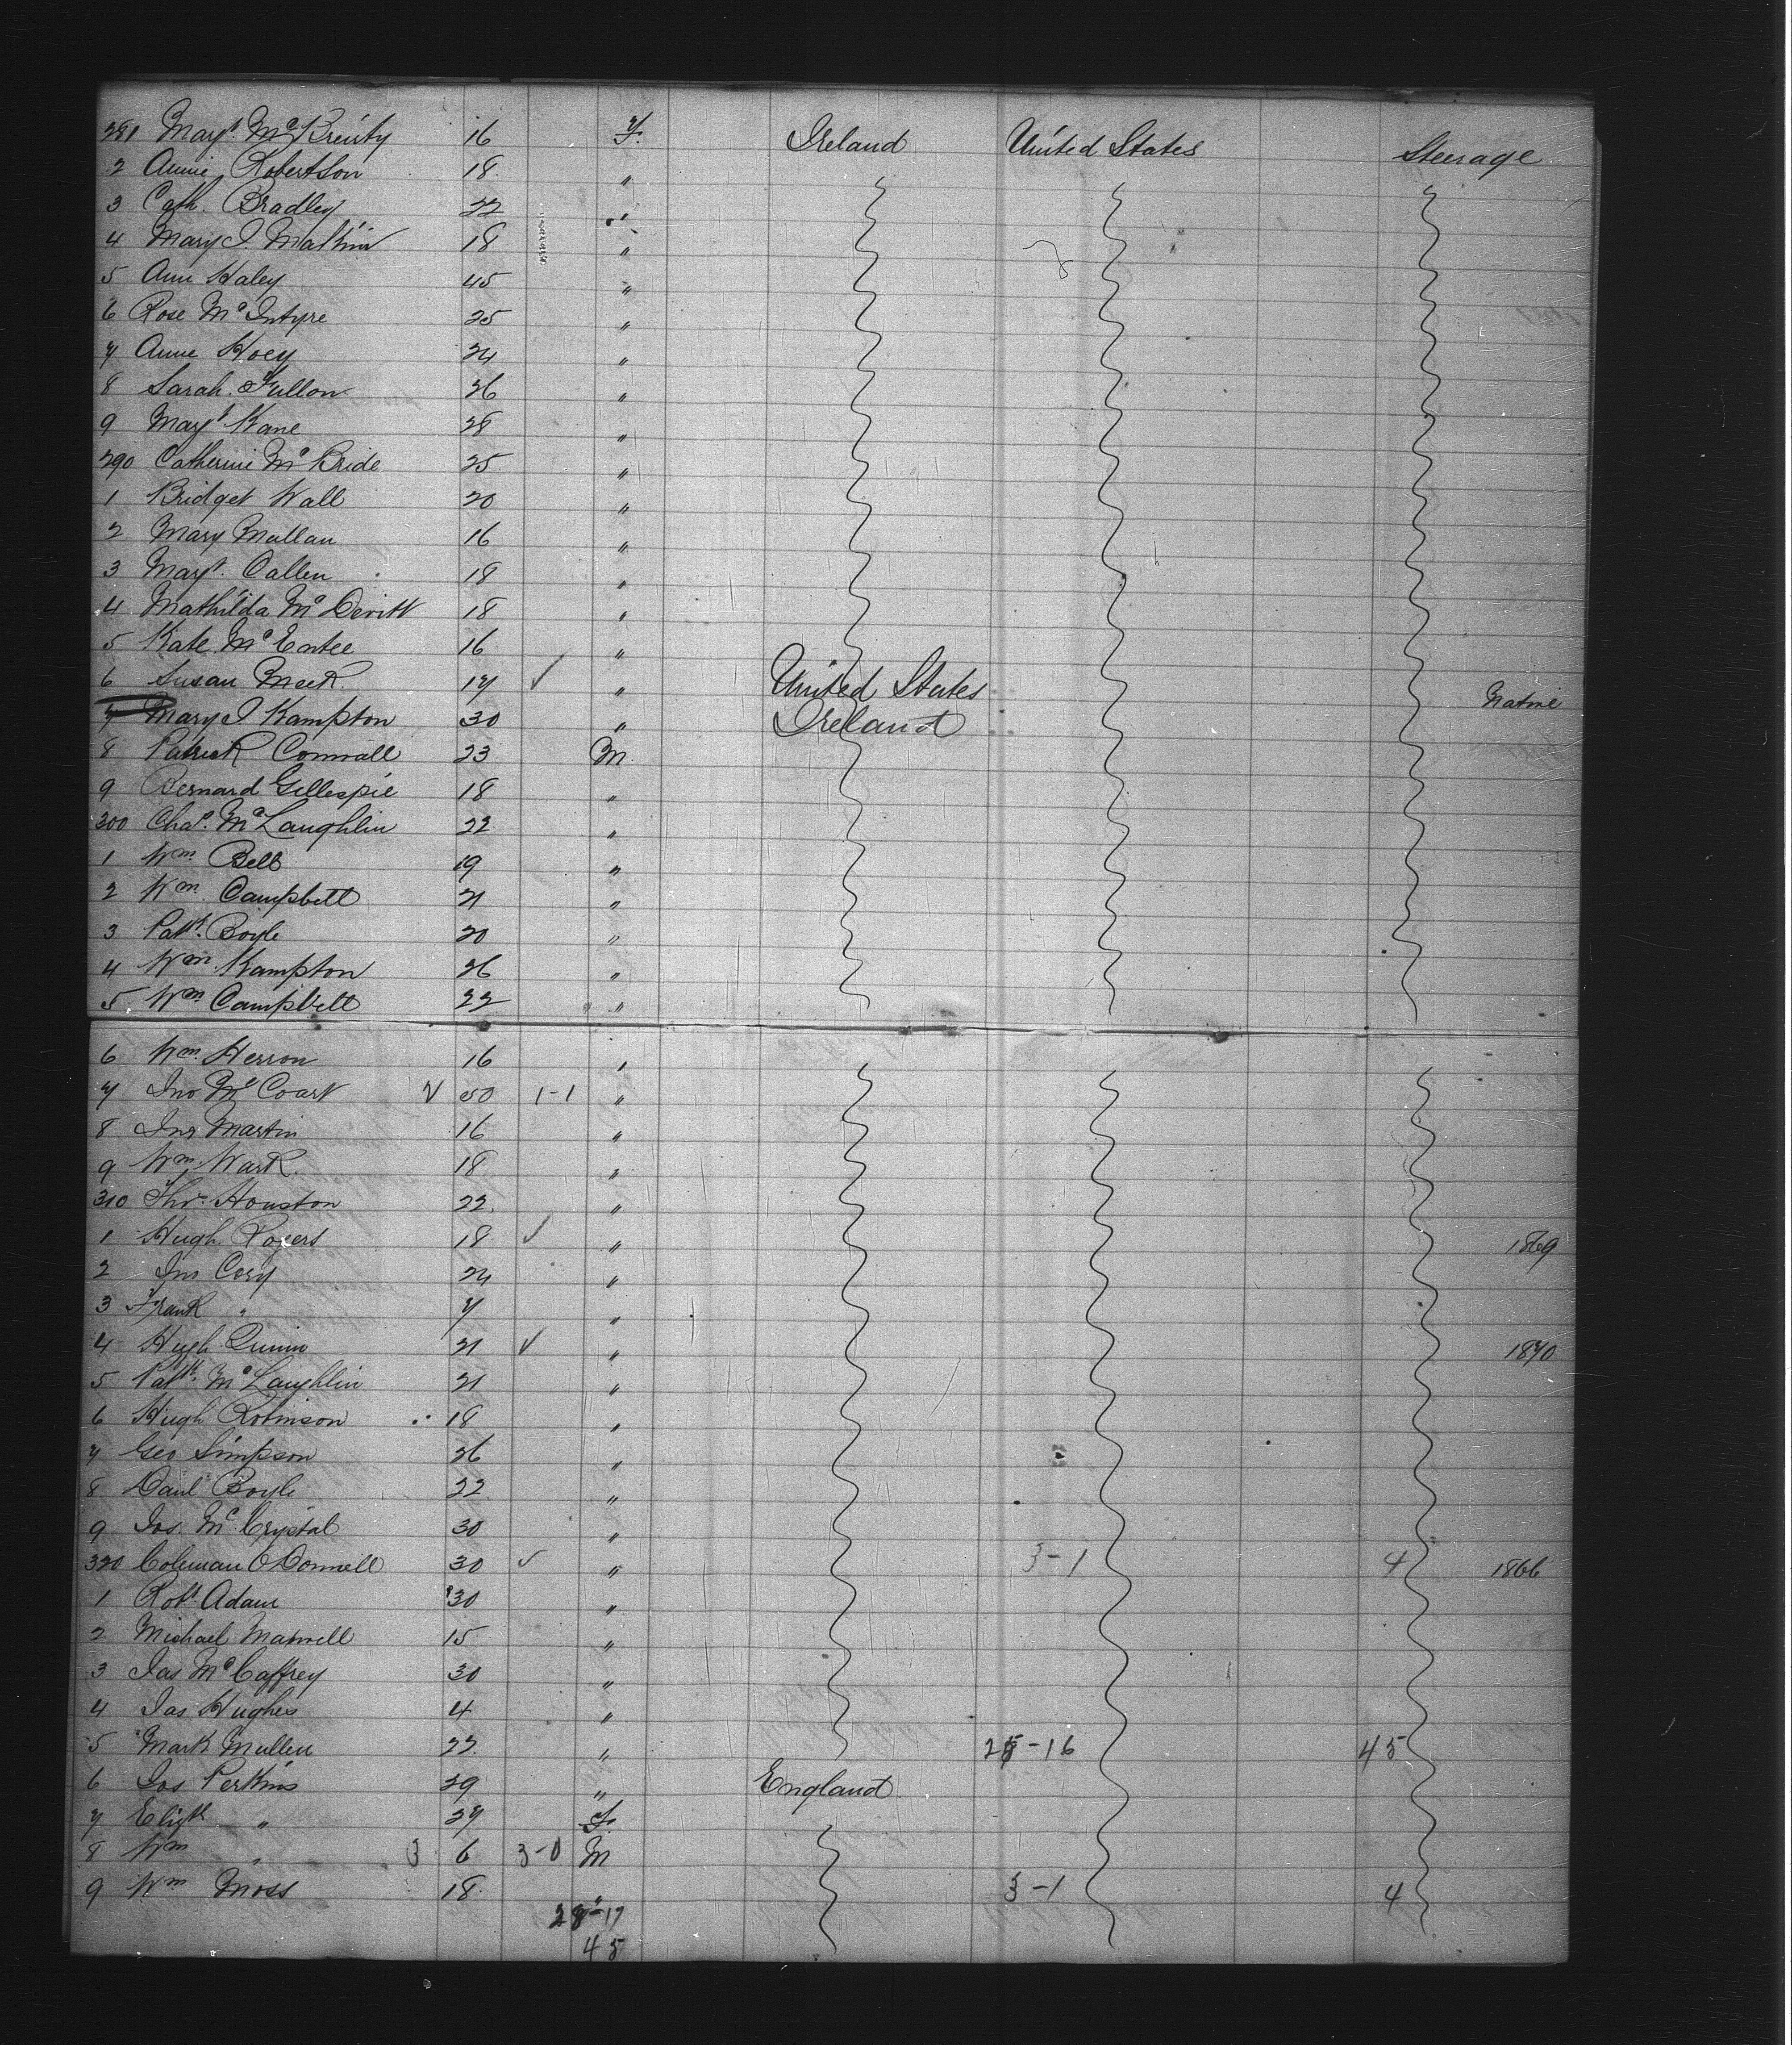 281 Margt. Mc Breirty 16 F. Ireland United States Steerage
2 Annie Robertson 18 "
3 Cath. Bradley 22 "
4 Mary J. 18 "
5 Ann Haley 45 "
6 Rose Mc Intyre 25 "
7 Anne Hoey 24 "
8 Sarah Fullon 26 "
9 Margt Kane 28 "
290 Catherine Mc Bride 25 "
1 Bridget Wall 20 "
2 Mary Mullan 16 "
3 Margt. Callen 18 "
4 Mathilda Mc Devitt 18 "
5 Kate Mc Entee 16 "
6 Susan Meek 17 ✓ " United States Native
7 Mary J. Hampton 30 " Ireland
8 Patrick Connall 23 M.
9 Bernard Gillespie 18 "
300 Chas. Mc Laughlin 22 "
1 Wm. Bell 19 "
2 Wm. Campbell 21 "
3 Patk. Boyle 20 "
4 Wm. Hampton 26 "
5 Wm. Campbell 22 "
6 Wm. Herron 16 "
7 Jno Mc Court 50 1-1 "
8 Jno Martin 16 "
9 Wm. Wark 18 "
310 Thos. Houston 22 "
1 Hugh Rogers 18 ✓ " 1869
2 Jno Cory 24 "
3 Frank " 7 "
4 Hugh Quinn 21 ✓ " 1870
5 Patk. Mc Laughlin 21 "
6 Hugh Robinson 18 "
7 Geo Simpson 26 "
8 Danl Boyle 22 "
9 Jos. Mc Crystal 30 "
320 Coleman O'Donnell 30 ✓ " 3-1 4 1866
1 Robt. Adam 30 "
2 Michael Maxwell 15 "
3 Jas Mc Caffrey 30 "
4 Jas Hughes 4 "
5 Mark Mullen 22 " 28-16 45
6 Jos Perkins 29 " England
7 Elizth " 27 F.
8 Wm " 3 6 3-0 M
9 Wm Moss 18 " 3-1 4
28-17
45